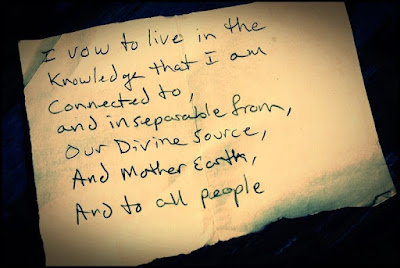 I vow to live in the
Knowledge that I am
Connected to,
and inseparable from,
Our Divine Source,
And Mother Earth,
And to all people